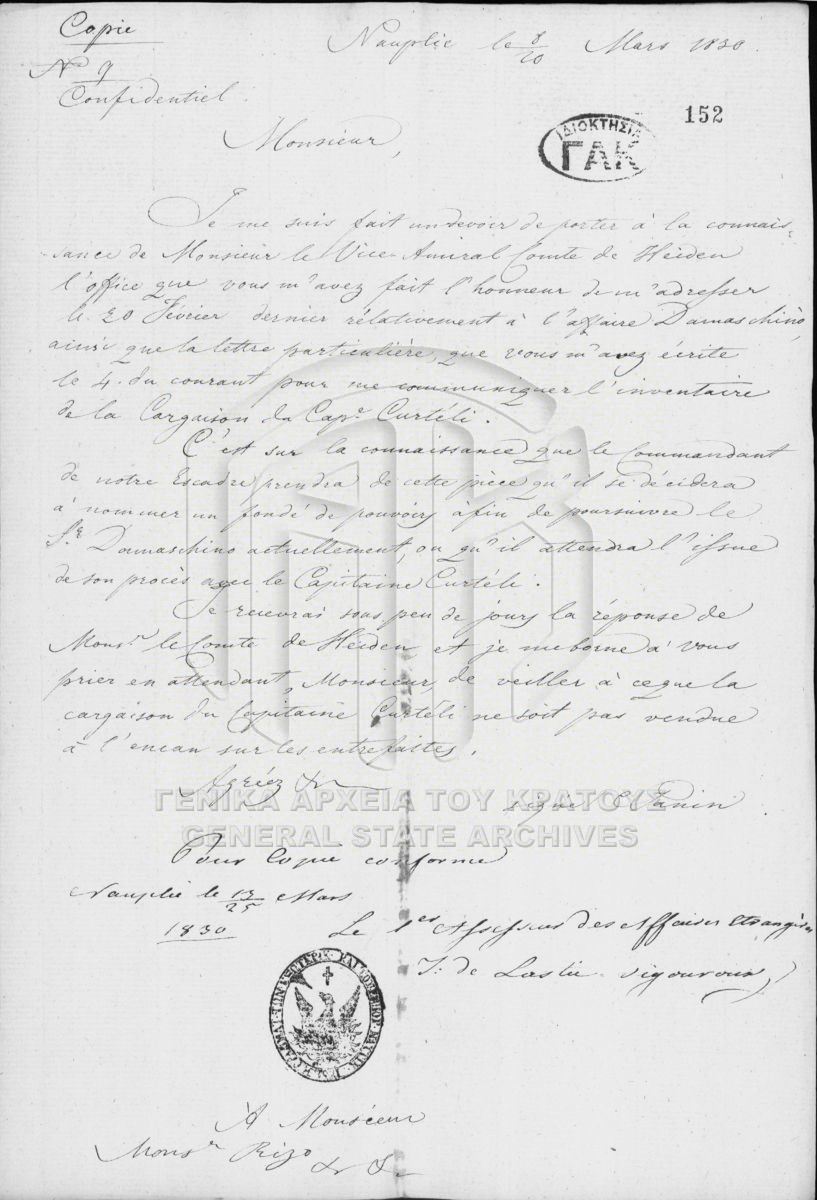 Copie
Nauplie le 8/20 Mars 1830.
N° 9
Confidentiel
152
ΙΔΙΟΚΤΗΣΙΑ
ΓΑΚ
Monsieur,
Je me suis fait un devoir de porter à la connais-
sance de Monsieur le Vice-Amiral Comte de Heiden
l'office que vous m'avez fait l'honneur de m'adresser
le 20 Février dernier rélativement à l'affaire Damaschino,
ainsi que la lettre particulière, que vous m'avez écrite
le 4. du courant pour me communiquer l'inventaire
de la Cargaison du Cape Curtéli.
C'est sur la connaissance que le Commandant
de notre Escadre prendra de cette pièce qu'il se décidera
à nommer un fondé de pouvoirs àfin de poursuivre le
Sr Damaschino actuellement, ou qu'il attendra l'issue
de son procès avec le Capitaine Curtéli.
Je recevrai sous peu de jours la réponse de
Monsr le Comte de Heiden et je me borne à vous
prier en attendant, Monsieur, de veiller à ce que la
cargaison du Capitaine Curtéli ne soit pas vendue
à l'encan sur les entrefaites.
Agréez &
signé Panin
ΓΕΝΙΚΑ ΑΡΧΕΙΑ ΤΟΥ ΚΡΑΤΟΥΣ
GENERAL STATE ARCHIVES
Pour Copie conforme
Nauplie le 13/25 Mars
1830
Le 1er Assesseur des Affaires Etrangères
J. de Lastic Vigouroux
À Monsieur
Monsr Rizo
&